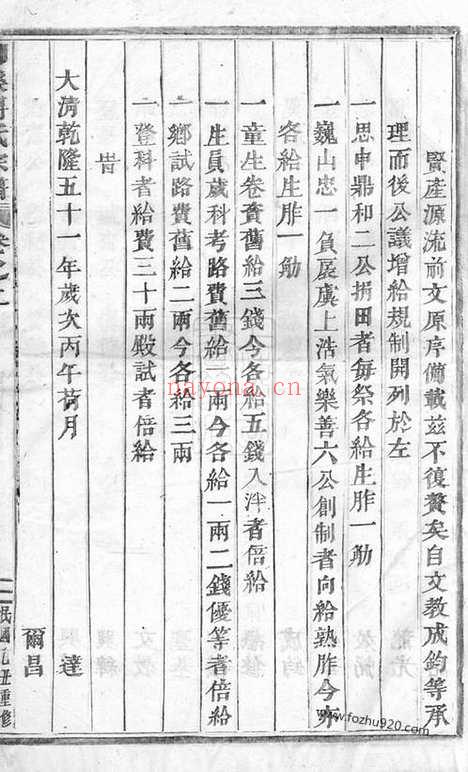 賢產源流前文原序備載茲不復贅矣自文教成鈞等承
理而後公議增給規制開列於左
一思申鼎和二公捐田者每祭各給生胙一觔
一巍山忠一負扆虞上浩氣樂善六公創制者向給熟胙今亦
各給生胙一觔
一童生卷資舊給三錢今各給五錢入泮者倍給
一生員歲科考路費舊給一兩今各給一兩二錢優等者倍給
一鄉試路費舊給二兩今各給三兩
一登科者給費三十兩殿試者倍給
旹
大清乾隆五十一年歲次丙午荷月
達
爾昌
氏宗譜
卷之二
二
民國乙丑重修
nayona.cn
www.fozhu920.com